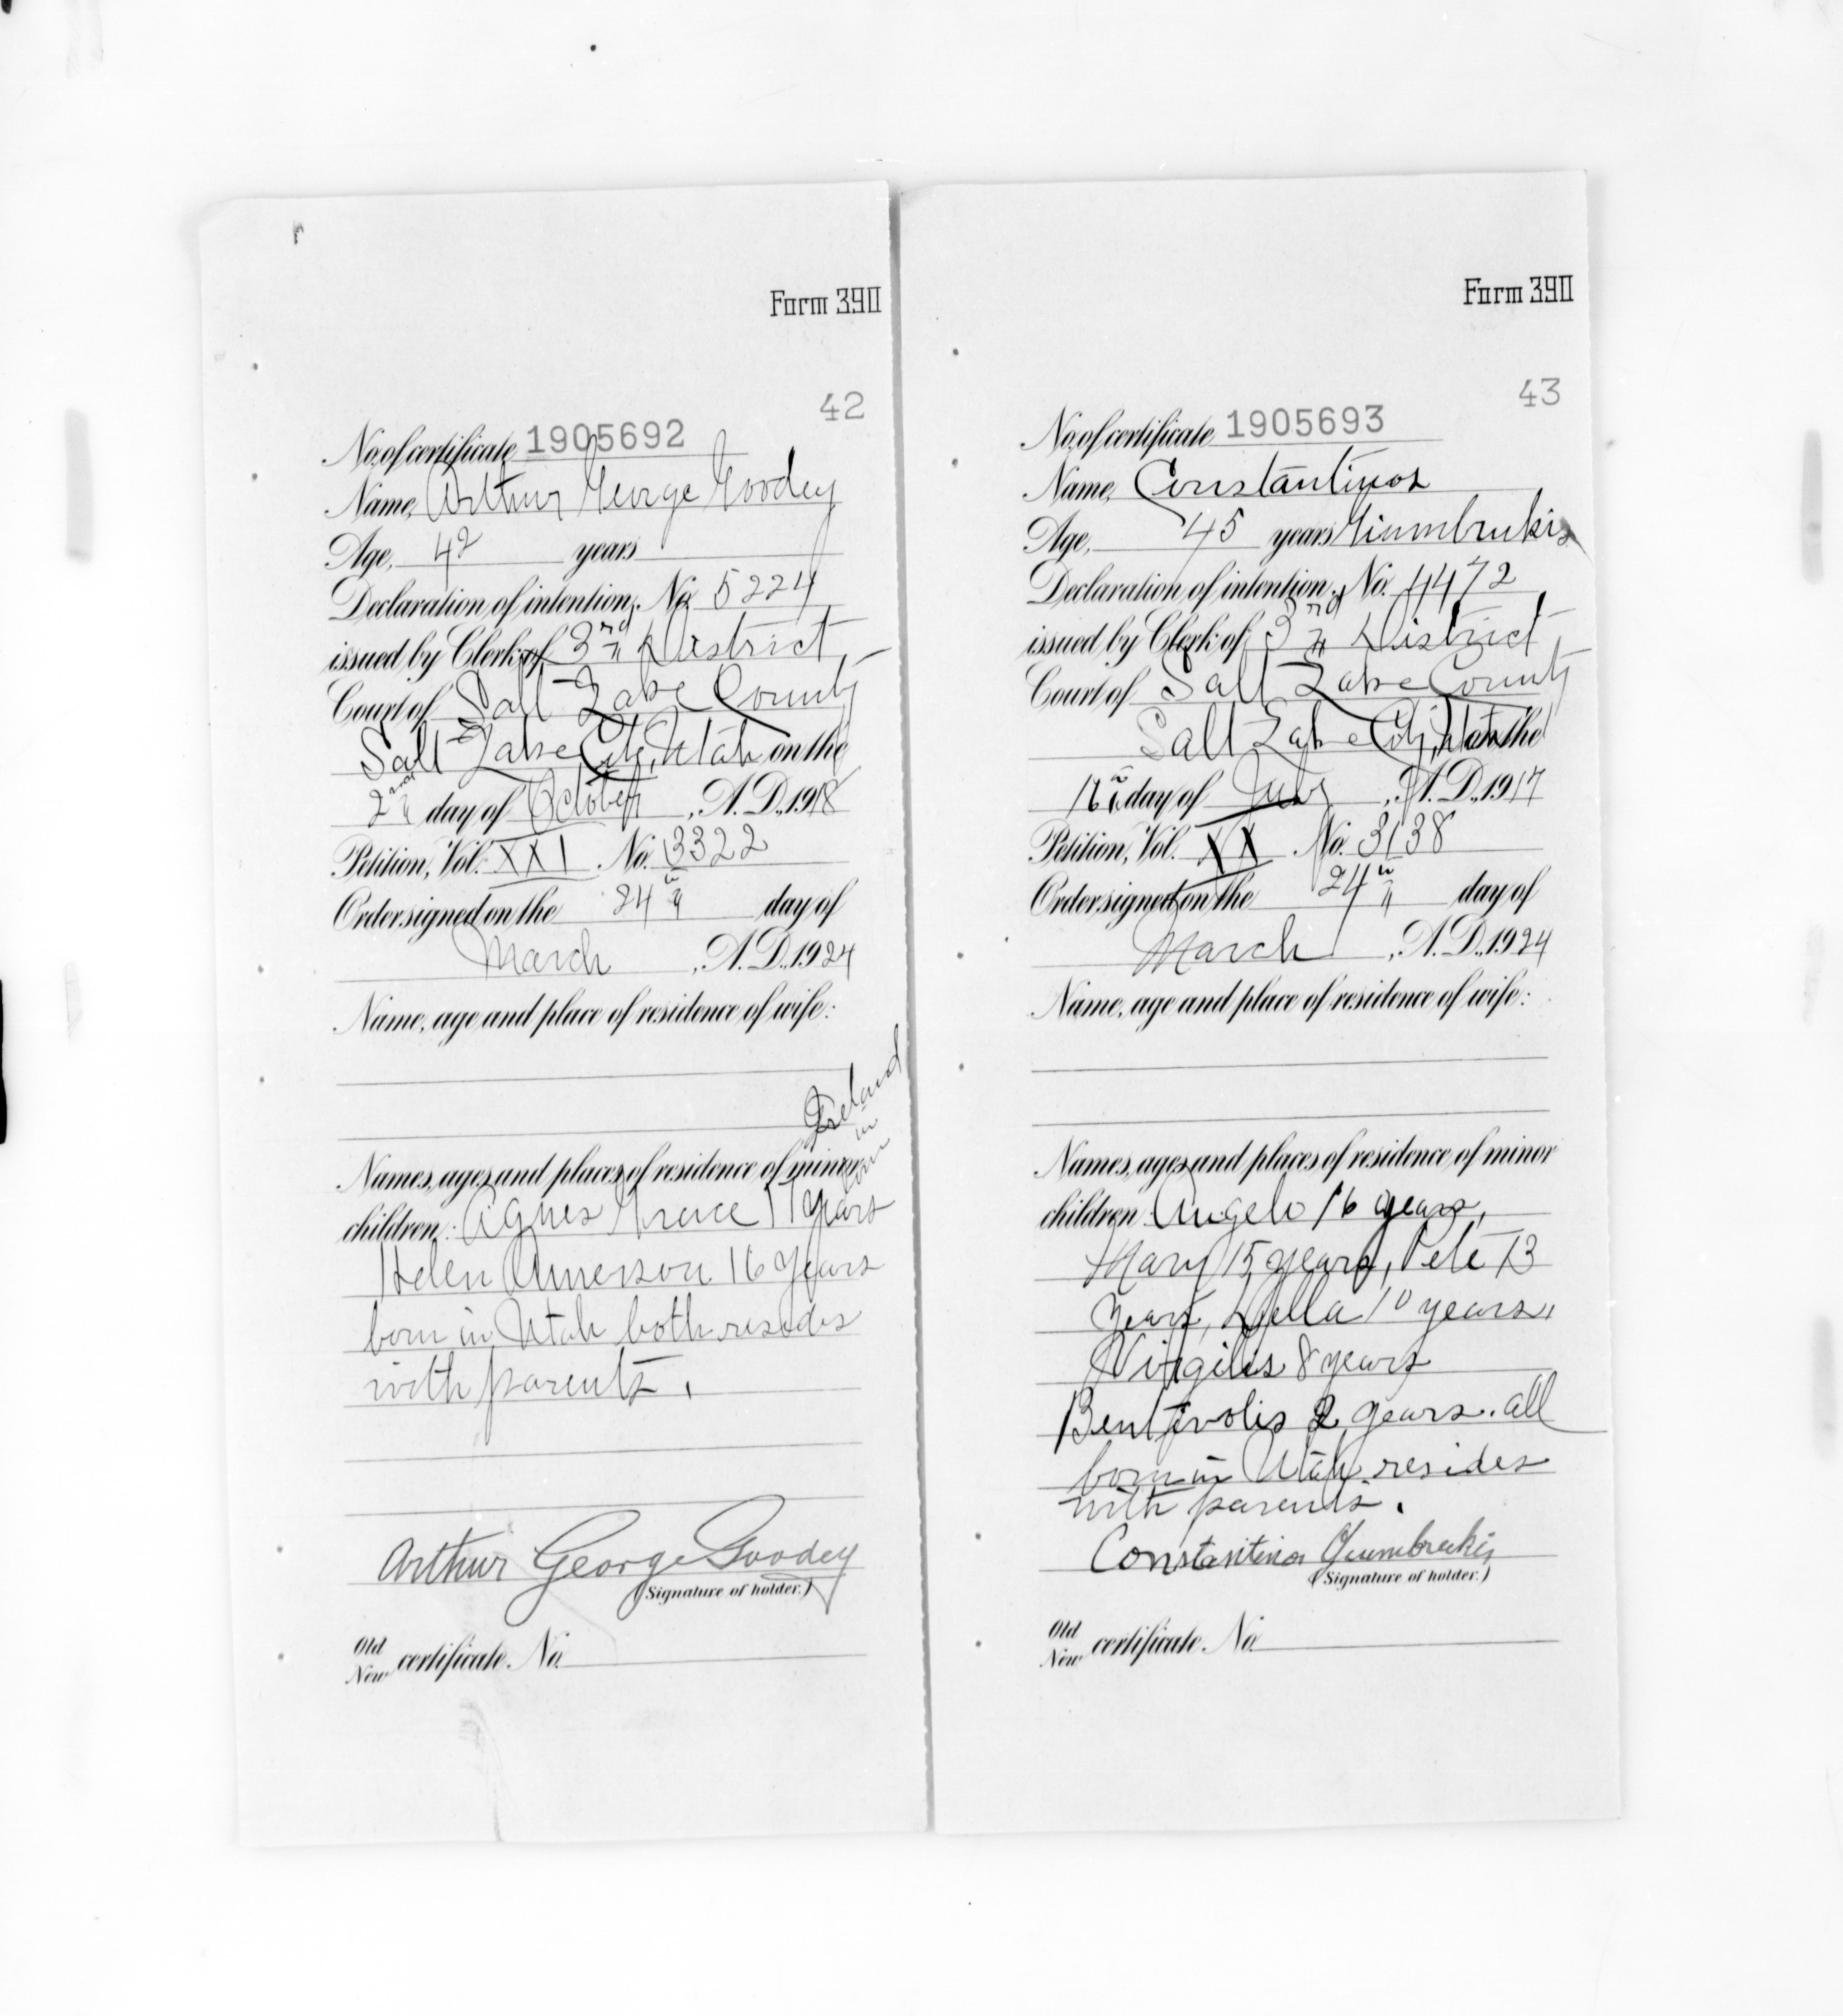 Form 390
42
No. of certificate 1905692
Name, Arthur George Goodey
Age, 42 years
Declaration of intention, No. 5224
issued by Clerk of 3rd District
Court of Salt Lake County
Salt Lake City, Utah on the
2nd day of October, A. D., 1918
Petition, Vol. XXI No. 3322
Order signed on the 24th day of
March, A. D., 1924
Name, age and place of residence of wife:
Names, ages and places of residence of minor
born in Ireland
children: Agnes Grace 17 years
Helen Amerson 16 years
born in Utah both resides
with parents.
Arthur George Goodey
(Signature of holder.)
Old
New certificate No.
Form 390
43
No. of certificate 1905693
Name, Constantinos
Age, 45 years Giumbrukis
Declaration of intention, No. 4472
issued by Clerk of 3rd District
Court of Salt Lake County
Salt Lake City, Utah on the
16th day of July, A. D., 1917
Petition, Vol. XX No. 3138
Order signed on the 24th day of
March, A. D., 1924
Name, age and place of residence of wife:
Names, ages and places of residence of minor
children Angelo 16 years,
Mary 15 years, Pete 13
years, Della 10 years,
Virgilis 8 years
Bentivolis 2 years. all
born in Utah resides
with parents.
Constantinos
(Signature of holder.)
Old
New certificate No.